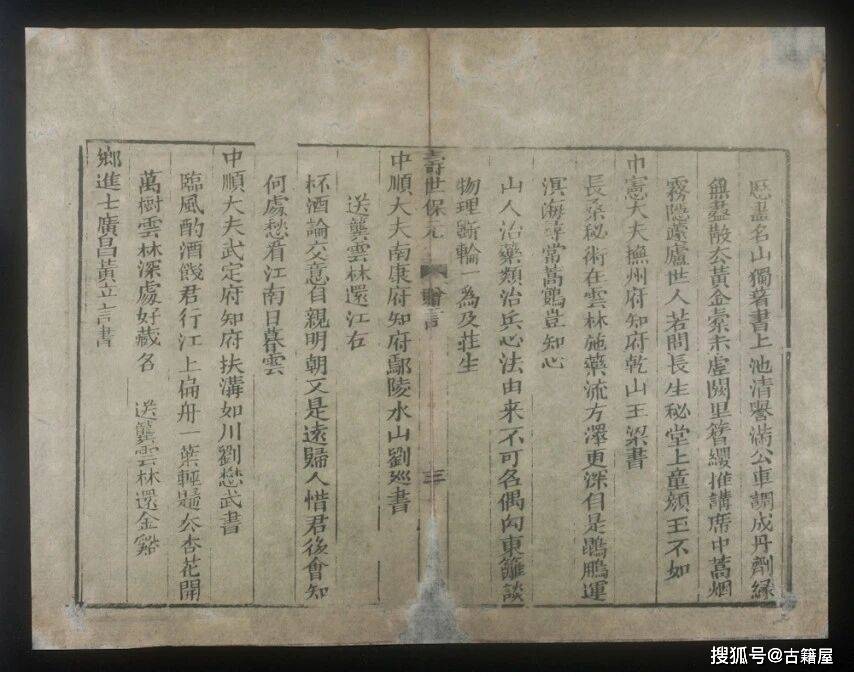 歷盡名山獨著書上池清譽滿公車調成丹劑緣
無盡散去黃金橐未虛闕里簪纓推講席中蒿烟
霧隱蘧廬世人若問長生秘堂上童顏玉不如
中憲大夫撫州府知府乾山王梁書
長桑秘術在雲林施藥流方澤更深自是鵾鵬運
溟海尋常蒿鷃豈知心
山人治藥類治兵心法由来不可名偶向東籬談
物理斲輪一為及莊生
壽世保元 贈言 三
中順大夫南康府知府鄢陵水山劉巡書
送龔雲林還江右
杯酒論交意自親明朝又是遠歸人惜君後會知
何處愁看江南日暮雲
中順大夫武定府知府扶溝如川劉懋武書
臨風酌酒餞君行江上扁舟一葉輕歸去杏花開
萬樹雲林深處好藏名 送龔雲林還金谿
鄉進士廣昌黃立言書
搜狐号@古籍屋